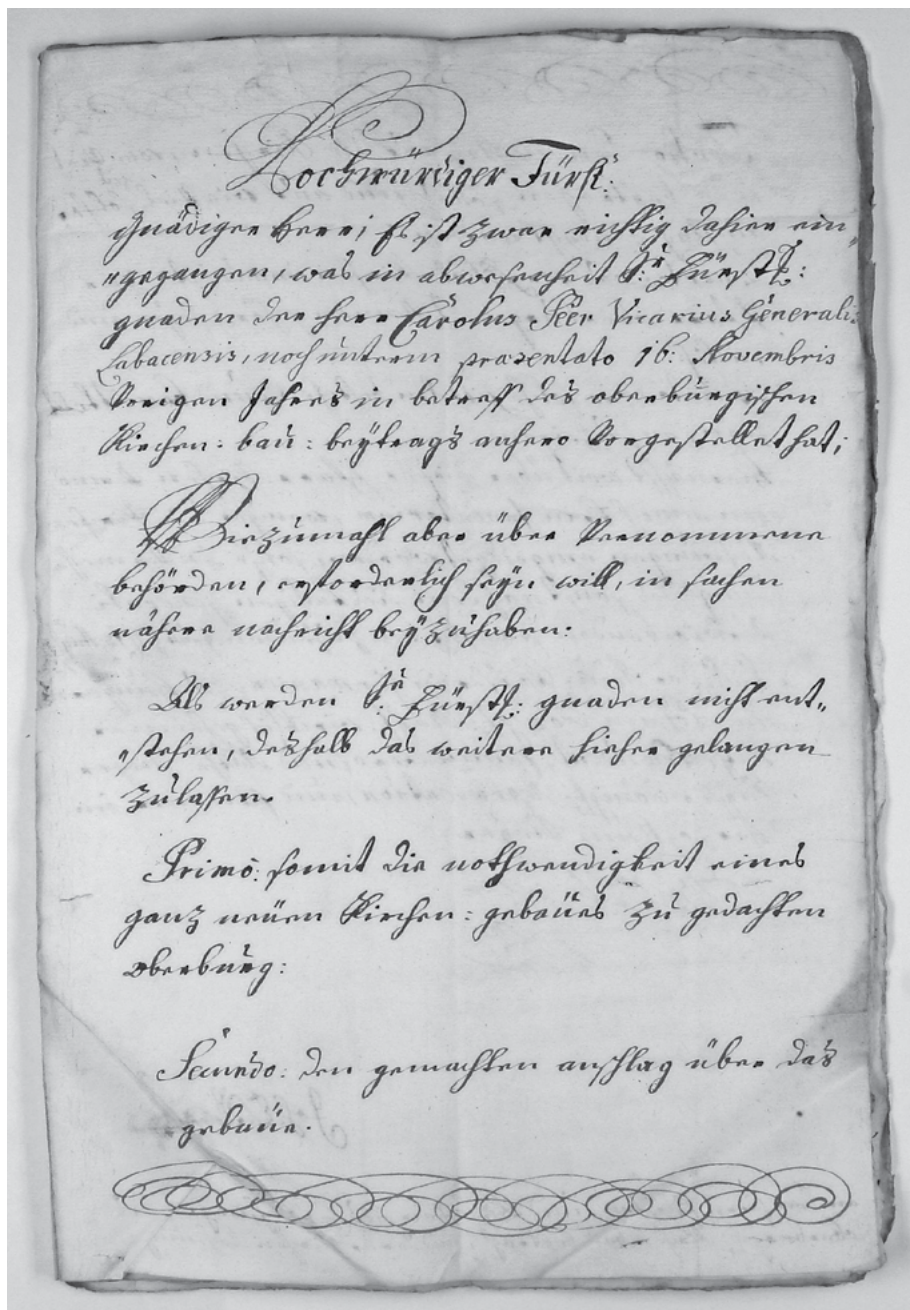 Hochwürdiger Fürst:
Gnädiger Herr; Es ist zwar richtig dahier ein„
„gegangen, was in abwesenheit Sr: Fürstl:
gnaden der herr Carolus Peer Vicarius Generalis
Labacensis, noch unterm praesentato 16: Novembris
Vorigen Jahres in betreff des oberburgischen
Kirchen: bau: beytrags anhero Vorgestellet hat;
Wiezumahl aber über Vernommene
behörden, erforderlich seyn will, in sachen
nähere nachricht beyzuhaben:
Als werden Sr: Fürstl: gnaden nicht ent„
„stehen, deshalb das weitere hieher gelangen
zulassen.
Primò: somit die nothwendigkeit eines
ganz neüen Kirchen: gebaües zu gedachten
oberburg:
Secundo: den gemachten anschlag über das
gebaüe.